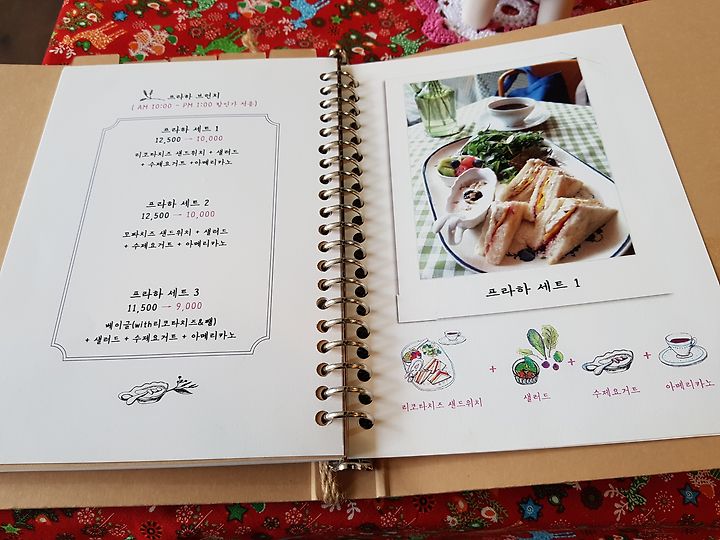 프라하 브런치
( AM 10:00 - PM 1:00 할인가 적용)
프라하 세트 1
12,500 → 10,000
리코타치즈 샌드위치 + 샐러드
+ 수제요거트 +아메리카노
프라하 세트 2
12,500 → 10,000
모짜치즈 샌드위치 + 샐러드
+ 수제요거트 + 아메리카노
프라하 세트 3
11,500 → 9,000
베이글(with리코타치즈&쨈)
+ 샐러드 + 수제요거트 + 아메리카노
프라하 세트 1
+ + +
리코타치즈 샌드위치 샐러드 수제요거트 아메리카노